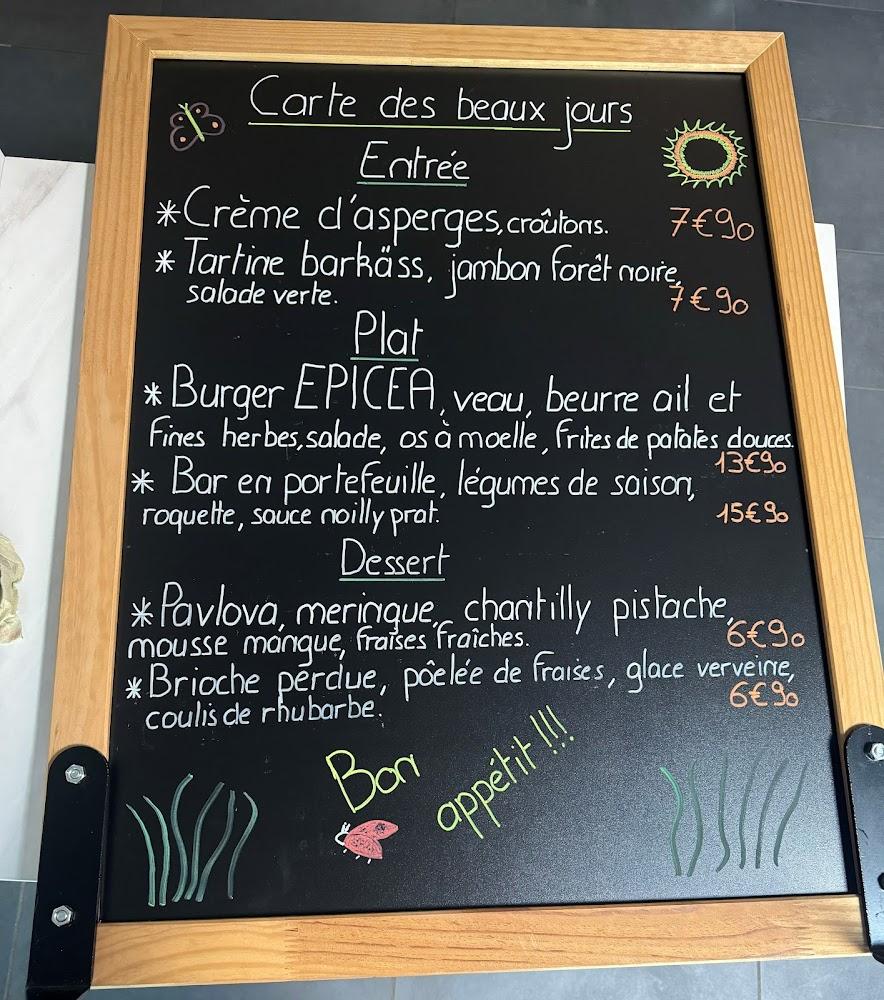 Carte des beaux jours
Entrée
* Crème d'asperges, croûtons. 7€90
* Tartine barkäss, jambon forêt noire,
salade verte. 7€90
Plat
* Burger EPICEA, veau, beurre ail et
fines herbes, salade, os à moelle, frites de patates douces.
13€90
* Bar en portefeuille, légumes de saison,
roquette, sauce noilly prat. 15€90
Dessert
* Pavlova, meringue, chantilly pistache,
mousse mangue, fraises fraîches. 6€90
* Brioche perdue, pôelée de fraises, glace verveine,
coulis de rhubarbe. 6€90
Bon appétit !!!